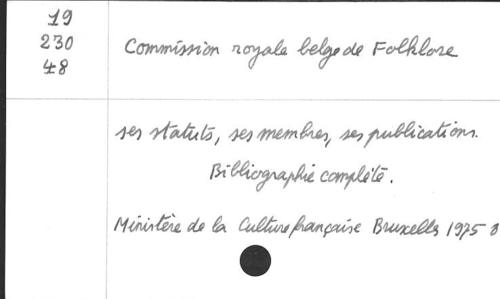 19
230
48
Commission royale belge de Folklore
ses statuts, ses membres, ses publications.
Bibliographie complète.
Ministère de la Culture française Bruxelles 1975 8